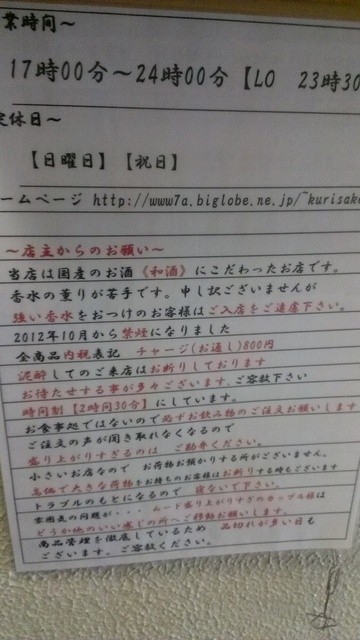 業時間～
17時00分～24時00分【LO 23時30
定休日～
【日曜日】【祝日】
ームページ http://www7a.biglobe.ne.jp/~kurisake
～店主からのお願い～
当店は国産のお酒《和酒》にこだわったお店です。
香水の薫りが苦手です。申し訳ございませんが
強い香水をおつけのお客様はご入店をご遠慮下さい。
2012年10月から禁煙になりました
全商品内税表記 チャージ(お通し)800円
泥酔してのご来店はお断りしております
お待たせする事が多々ございます、ご容赦下さい
時間制【2時間30分】にしています。
お食事処ではないので必ずお飲み物のご注文お願いします
ご注文の声が聞き取れなくなるので
盛り上がりすぎるのは ご勘弁ください。
小さいお店なので お荷物お預かりする所がございません。
高価で大きな荷物をお持ちのお客様はお断りする時もございます
トラブルのもとになるので 寝ないで下さい。
雰囲気の問題が・・・ムード盛り上がりすぎのカップル様は
どうか他のいい感じの所へご移動お願いします。
商品管理を徹底しているため 品切れが多い日も
ございます。ご容赦ください。